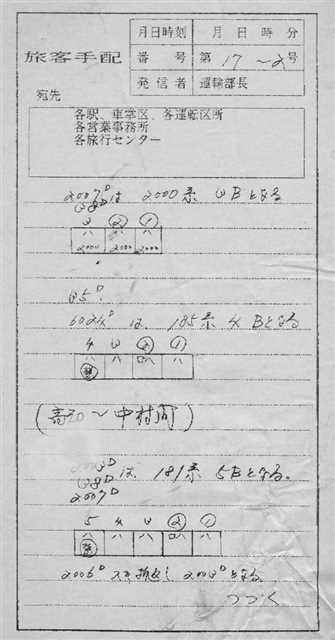 旅客手配
月日時刻 月 日 時 分
番 号 第 17〜2号
発信者 運輸部長
宛先
各駅、車掌区、各運転区所
各営業事務所
各旅行センター
2007D
38D は 2000系 3Bとなる
3 ② ①
ハ ハ ハ
2000 2000 2000
85D
6024D は 185系 4Bとなる
4 3 ② ①
ハ ハ ロハ ハ
(高知〜中村間)
3D
38D は、181系 5Bとなる。
2007D
5 4 3 ② ①
ハ ハ ハ ロハ ハ
2006D 折返し 2003Dとなる
つづく